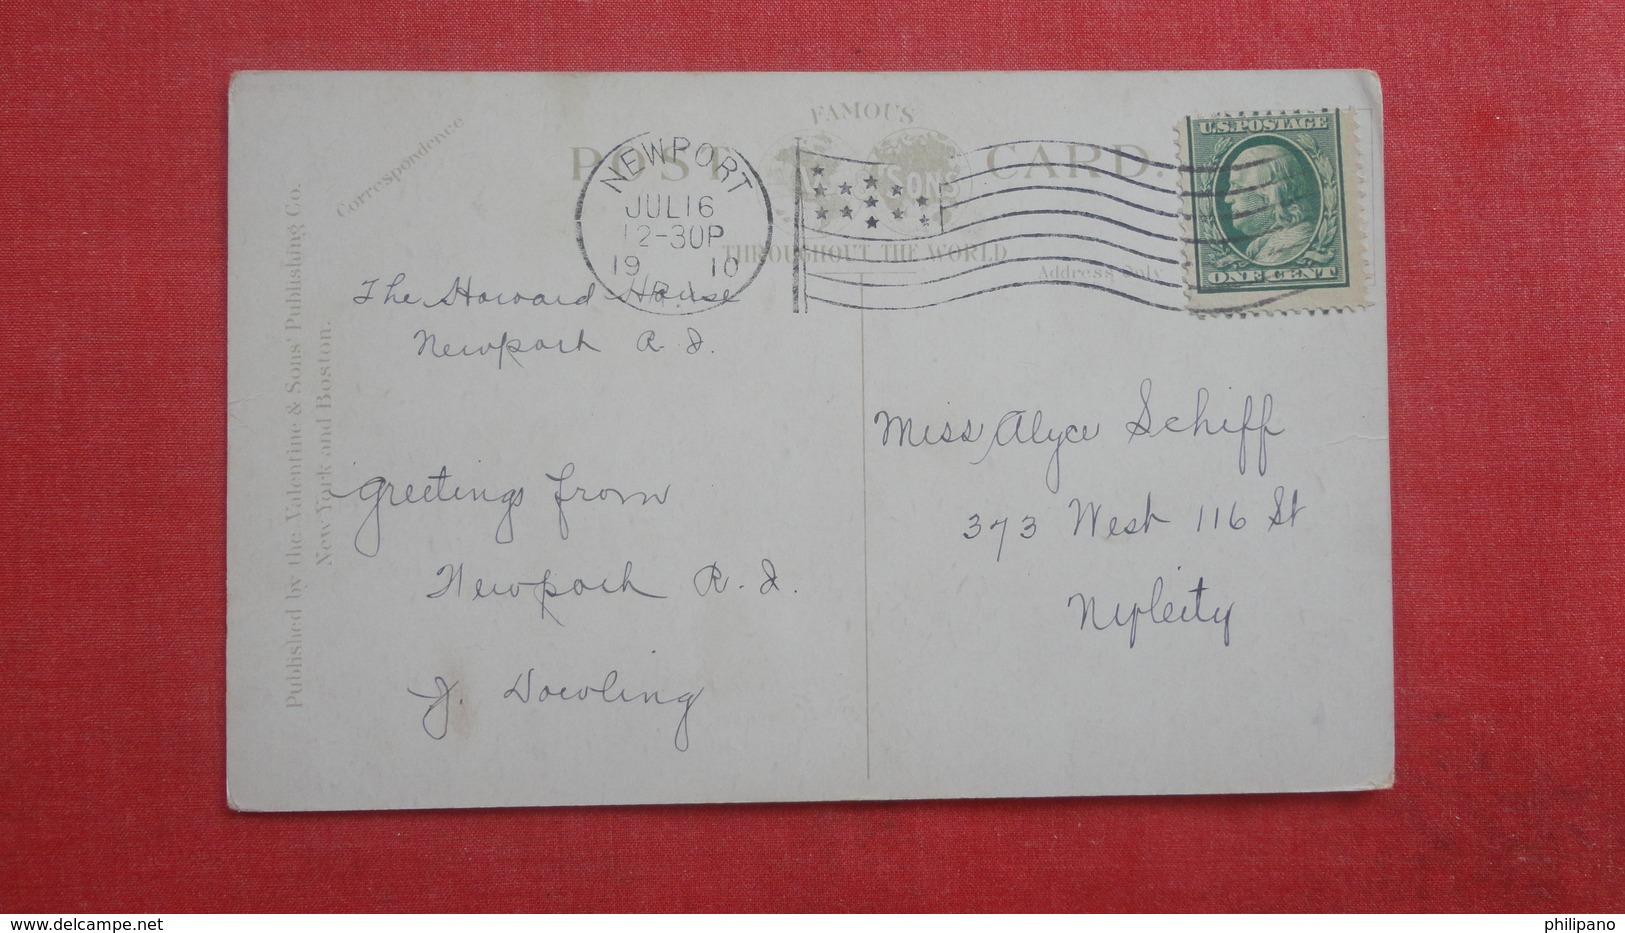 Correspondence
POST CARD.
FAMOUS
SONS
THROUGHOUT THE WORLD
Address Only
NEWPORT
JUL 16
12-30P
19 10
R.I.
U.S. POSTAGE
ONE CENT
Published by the Valentine & Sons' Publishing Co.
New York and Boston.
The Howard House
Newport R. I.
Greetings from
Newport R. I.
J. Dowling
Miss Alyce Schiff
373 West 116 St
delcampe.net
philipano